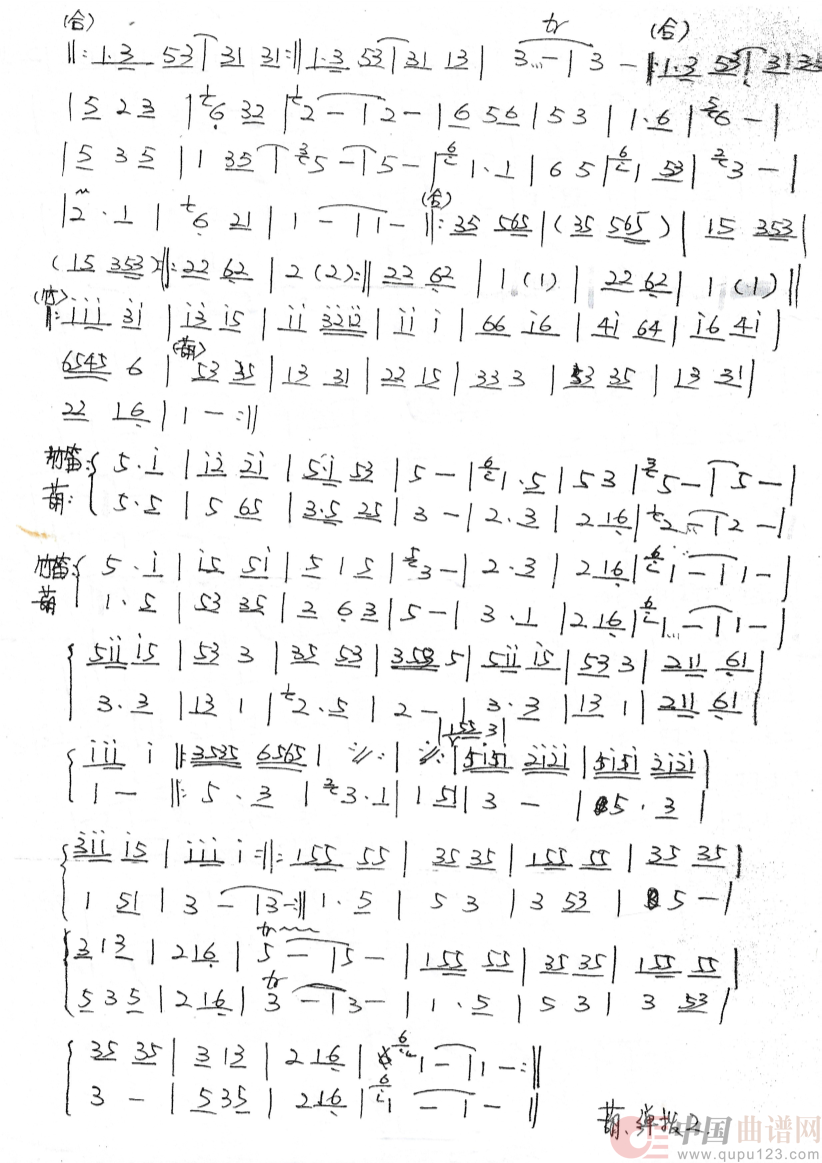 (合) tr (合)
‖: 1·3 53 | 31 31 :‖ 1·3 53 | 31 13 | 3 - | 3 - ‖: 1·3 53 | 31 35
| 5 2 3 | 6 32 | 2 - | 2 - | 6 56 | 53 | 1·6 | 6 - |
| 5 3 5 | 1 35 | 5 - | 5 - | 1·1 | 6 5 | 1 53 | 3 - |
(合)
| 2·1 | 6 21 | 1 - | 1 - ‖: 35 565 | (35 565) | 15 353 |
(15 353) :‖: 22 62 | 2 (2) :‖ 22 62 | 1 (1) | 22 62 | 1 (1) ‖
(竹)
‖: i i i 3 i | i 3 i 5 | i i 3 2 i 2 | i i i | 66 i6 | 4i 64 | i6 4i |
(葫)
6545 6 | 53 35 | 13 31 | 22 15 | 33 3 | 53 35 | 13 31 |
22 16 | 1 - :‖
竹笛: 5·i | i2 2i | 5·i 53 | 5 - | 1·5 | 5 3 | 5 - | 5 - |
葫: 5·5 | 5 65 | 3·5 25 | 3 - | 2·3 | 2 16 | 2 - | 2 - |
竹笛: 5·i | i5 5i | 5 1 5 | 3 - | 2·3 | 2 16 | 1 - | 1 - |
葫 1·5 | 53 35 | 2 6 3 | 5 - | 3·1 | 2 16 | 1 - | 1 - |
5ii i5 | 53 3 | 35 53 | 3553 5 | 5ii i5 | 53 3 | 211 61 |
3·3 | 13 1 | 2·5 | 2 - | 3·3 | 13 1 | 211 61 |
| 155 3 |
iii i ‖: 3535 6565 | ∕∕ | ∕∕ | 5i5i 2i2i | 5i5i 2i2i |
1 - ‖: 5·3 | 3·1 | 1 51 | 3 - | 5·3 |
3ii i5 | iii i :‖: 155 55 | 35 35 | 155 55 | 35 35 |
1 51 | 3 - | 3 - :‖ 1·5 | 5 3 | 3 53 | 5 - |
tr
3 1 3 | 2 16 | 5 - | 5 - | 155 55 | 35 35 | 155 55 |
tr
5 3 5 | 2 16 | 3 - | 3 - | 1·5 | 5 3 | 3 53 |
35 35 | 3 13 | 2 16 | 1 - | 1 - :‖
3 - | 5 35 | 2 16 | 1 - | 1 - ‖
葫、弹拨2.
中国曲谱网
www.qupu123.com